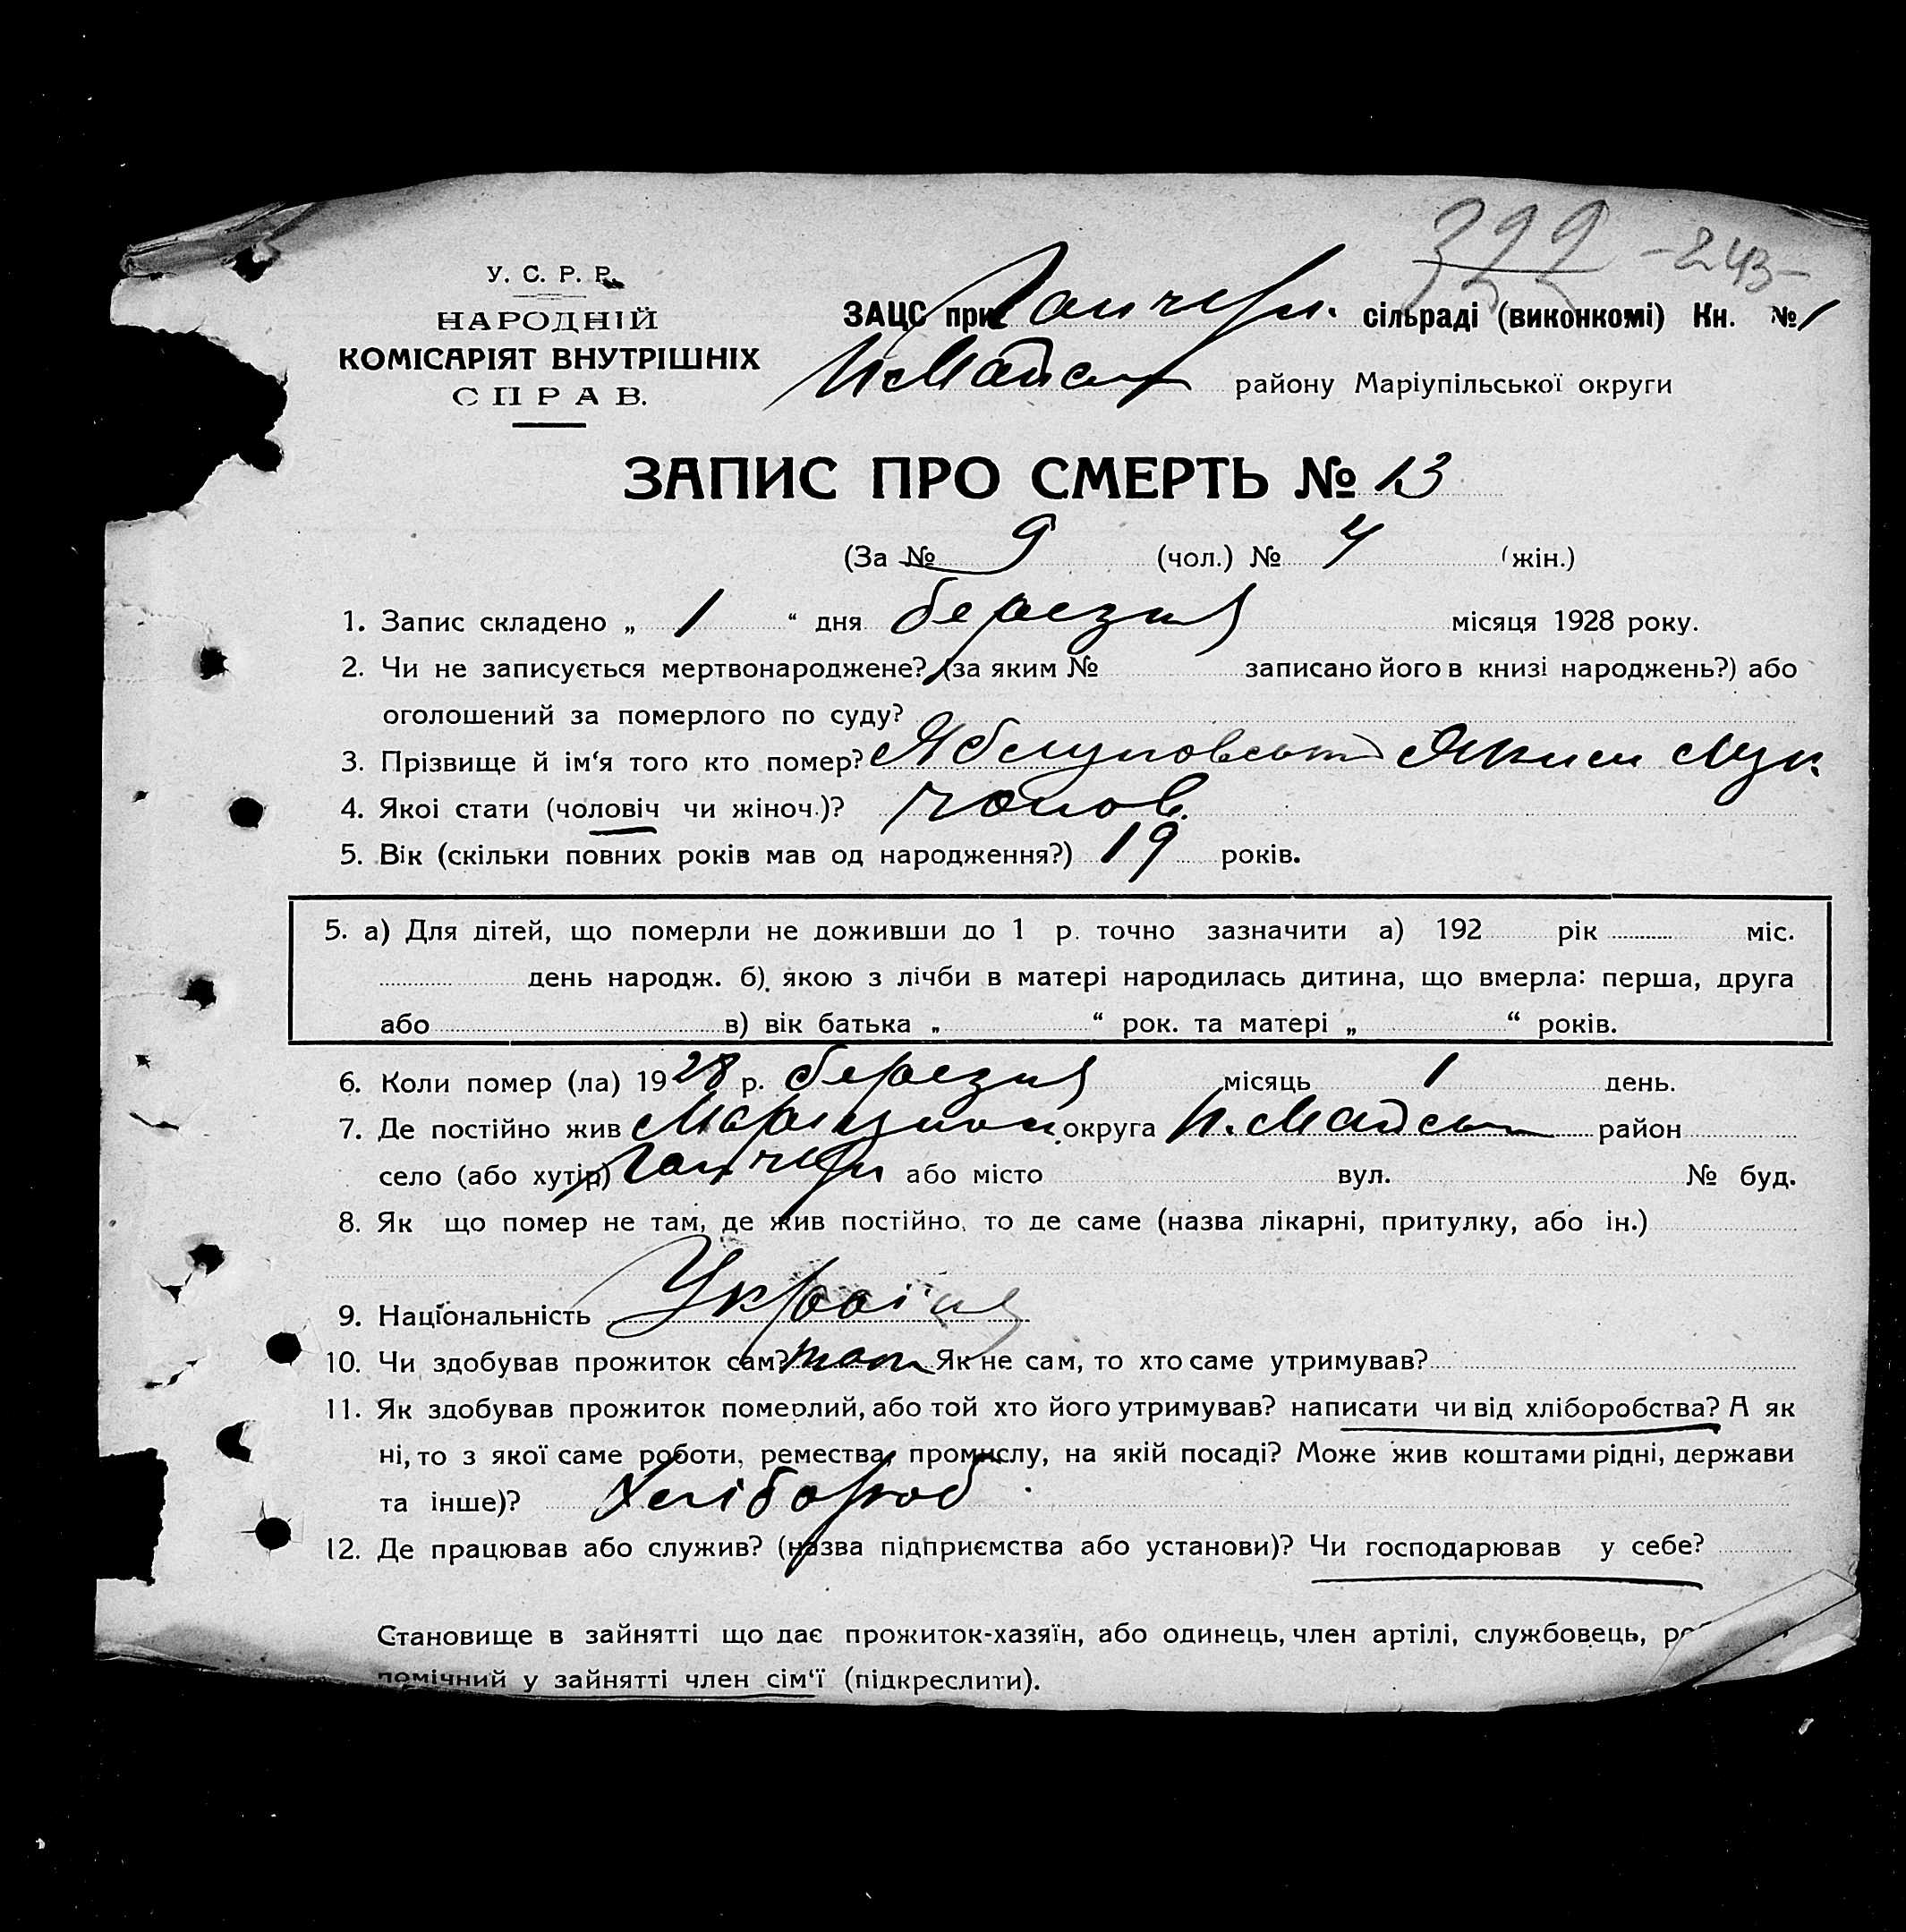 322 -243-
У. С. Р. Р.
НАРОДНІЙ
КОМІСАРІЯТ ВНУТРІШНІХ
СПРАВ.
ЗАЦС при сільраді (виконкомі) Кн. № 1
району Маріупільської округи
ЗАПИС ПРО СМЕРТЬ № 13
(За № 9 (чол.) № 4 (жін.)
1. Запис складено „ 1 “ дня березня місяця 1928 року.
2. Чи не записується мертвонароджене? (за яким № записано його в книзі народжень?) або
оголошений за померлого по суду?
3. Прізвище й ім‘я того кто помер? Яблуновський Яким Лук.
4. Якоі стати (чоловіч чи жіноч.)? чолов.
5. Вік (скільки повних років мав од народження?) 19 років.
5. а) Для дітей, що померли не доживши до 1 р. точно зазначити а) 192 рік міс.
день народж. б) якою з лічби в матері народилась дитина, що вмерла: перша, друга
або в) вік батька „ “ рок. та матері „ “ років.
6. Коли помер (ла) 1928 р. березня місяць 1 день.
7. Де постійно жив округа район
село (або хутір) або місто вул. № буд.
8. Як що помер не там, де жив постійно, то де саме (назва лікарні, притулку, або ін.)
9. Національність Україн
10. Чи здобував прожиток сам? так Як не сам, то хто саме утримував?
11. Як здобував прожиток померлий, або той хто його утримував? написати чи від хліборобства? А як
ні, то з якої саме роботи, ремества, промислу, на якій посаді? Може жив коштами рідні, держави
та інше)? Хлібороб
12. Де працював або служив? (назва підприємства або установи)? Чи господарював у себе?
Становище в зайнятті що дає прожиток-хазяїн, або одинець, член артілі, службовець,
помічний у зайнятті член сім‘ї (підкреслити).